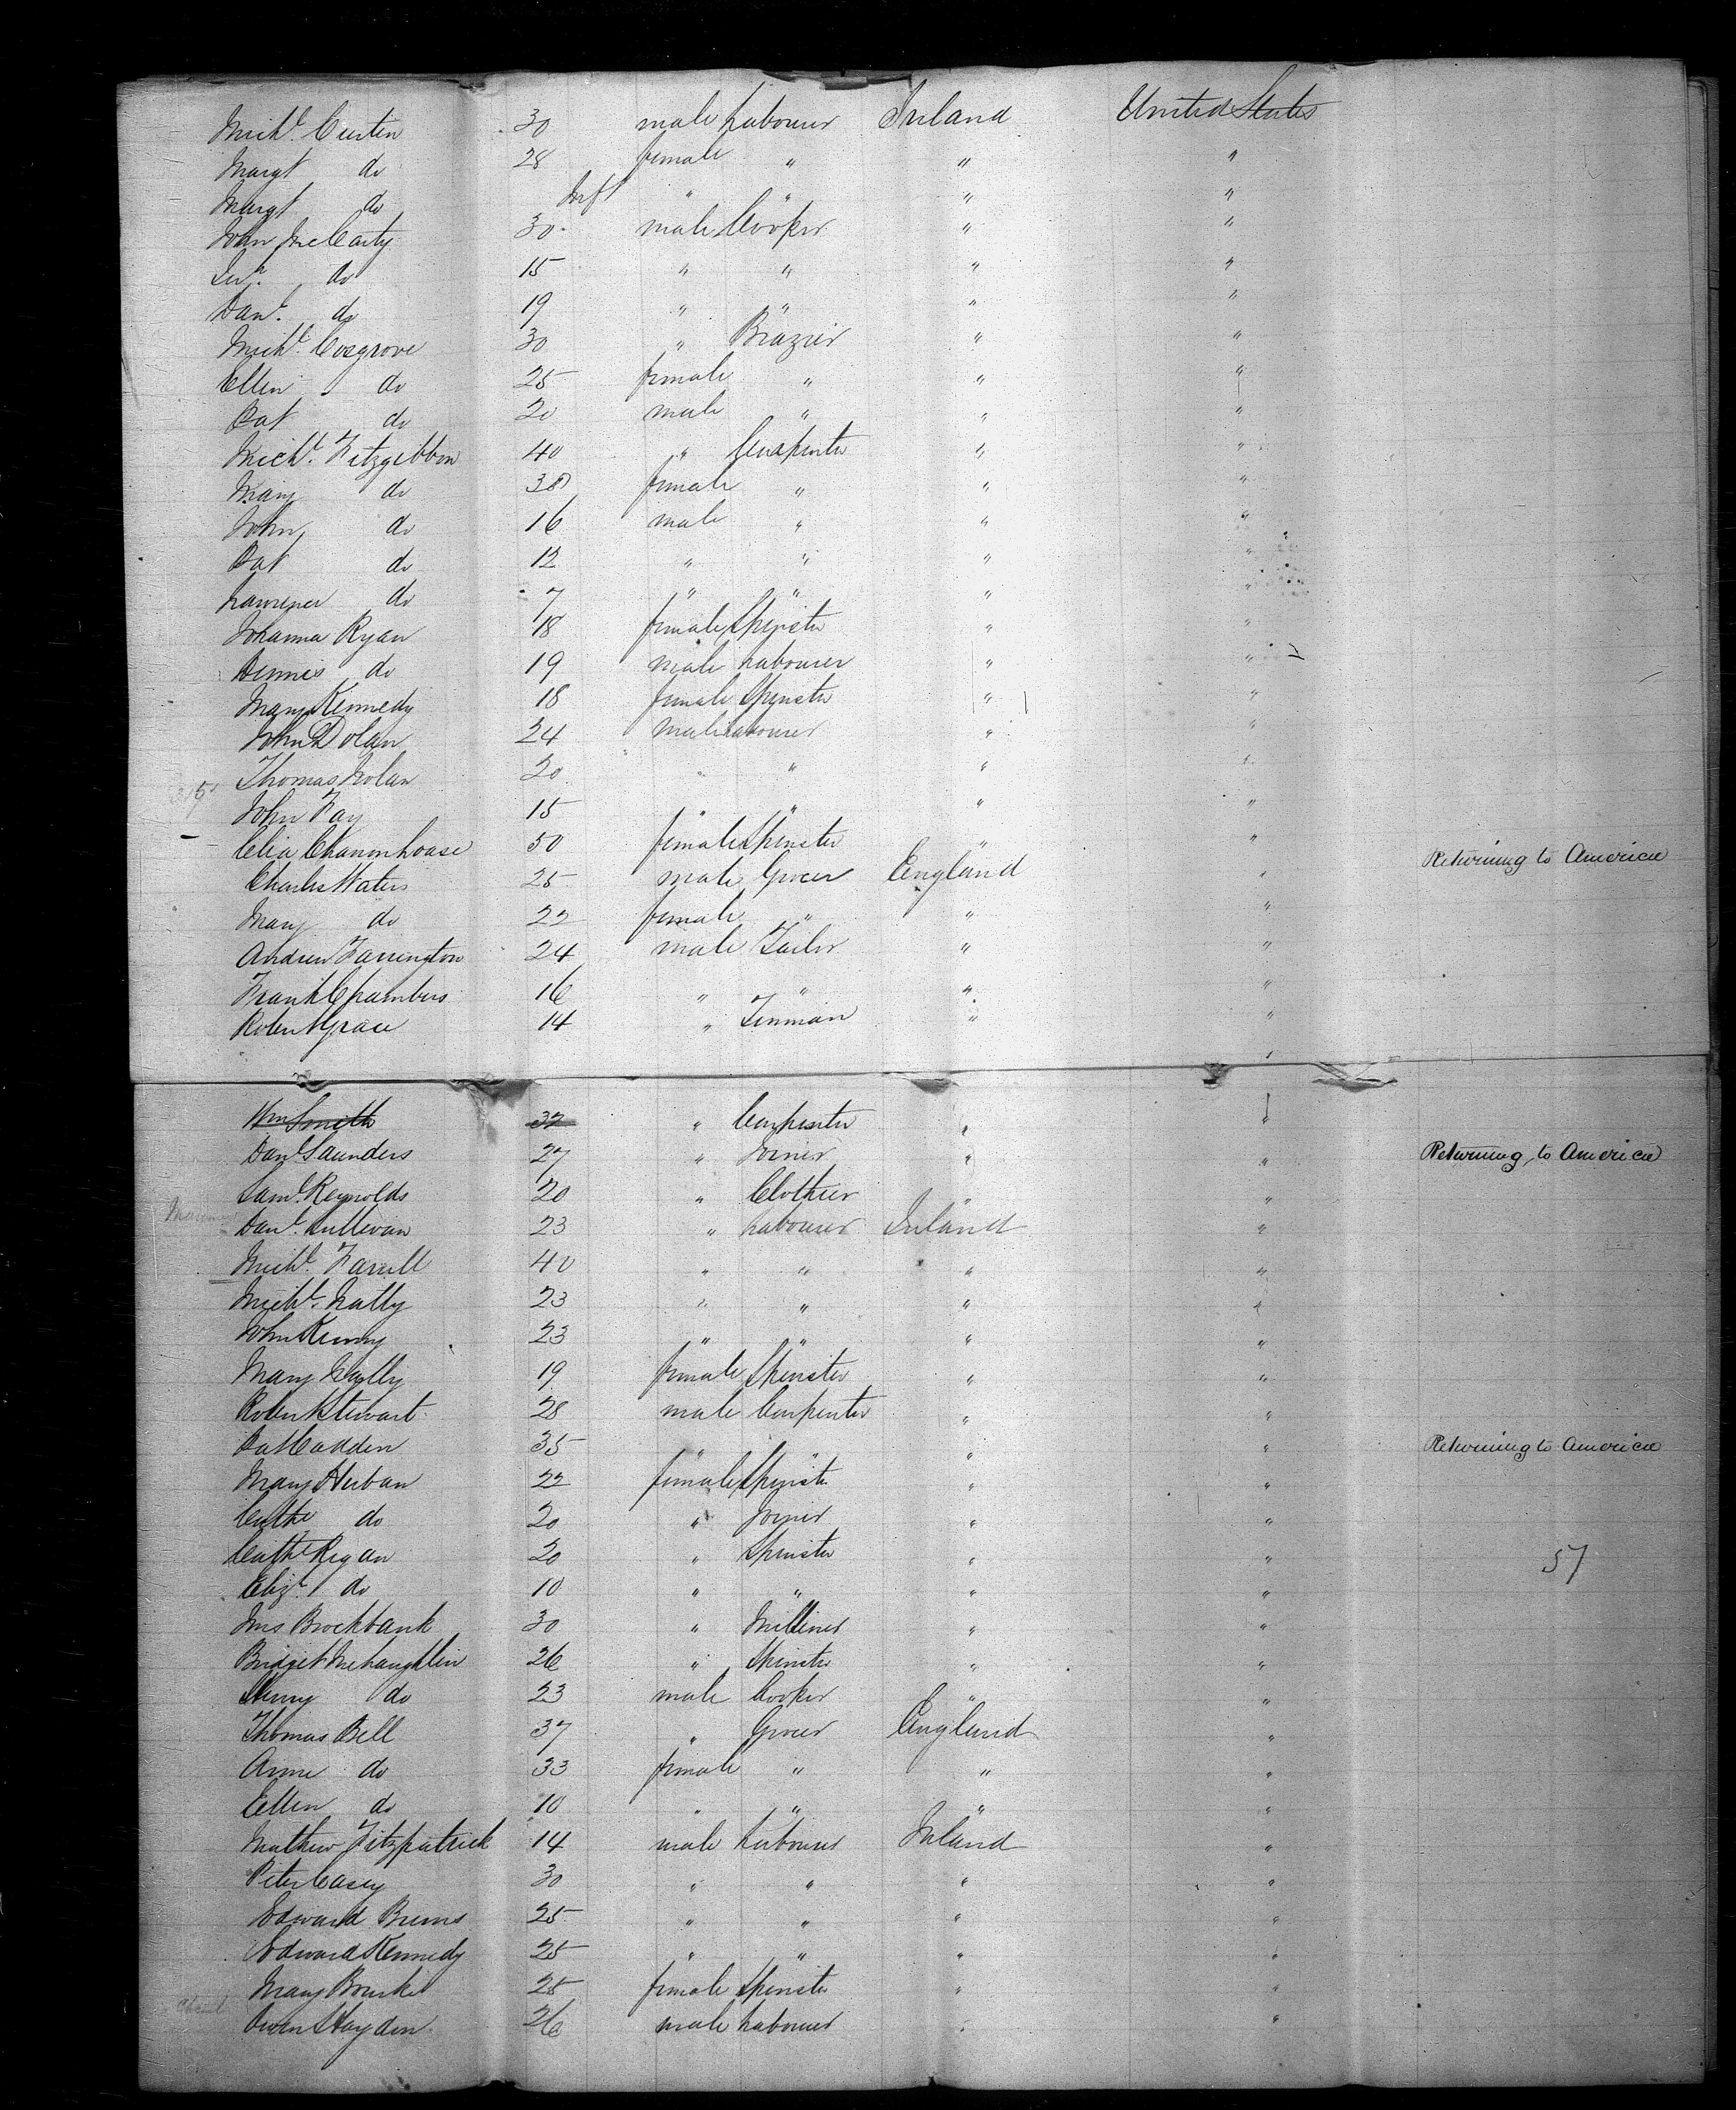 Mich.l Curten 30 male Labourer Ireland United States
Margt do 28 female " " "
Margt do Inft " " " "
John McCarty 30 male Cooper " "
Jer.h do 15 " " " "
Dan.l do 19 " " " "
Mich.l Cosgrove 30 " Brazier " "
Ellen do 25 female " " "
Pat do 20 male " " "
Mich.l Fitzgibbon 40 " Carpenter " "
Mary do 38 female " " "
John do 16 male " " "
Pat do 12 " " " "
Lawrence do 7 " " " "
Johanna Ryan 18 female Spinster " "
Dennis do 19 male Labourer " "
Mary Kennedy 18 female Spinster " "
John Dolan 24 male Labourer " "
Thomas Nolan 20 " " " "
John Fay 15 " " " "
Celia Chanonhouse 50 female Spinster " " Returning to America
Charles Waters 25 male Grocer England "
Mary do 22 female " " "
Andrew Farrington 24 male Tailor " "
Frank Chambers 16 " " " "
Robert Grace 14 " Tinman " "
Wm Smith 32 " Carpenter " "
Danl Saunders 27 " Joiner " " Returning to America
Saml Reynolds 20 " Clothier " "
Dan.l Sullivan 23 " Labourer Ireland "
Mich.l Farrell 40 " " " "
Mich.l Nally 23 " " " "
John Kenny 23 " " " "
Mary 19 female Spinster " "
Robert Stewart 28 male Carpenter " "
Pat Cadden 35 " " " " Returning to America
Mary Herban 22 female Spinster " "
Cathe do 20 " Joiner " "
Cathe Regan 20 " Spinster " " 57
Eliz.h do 10 " " " "
Mrs Brockbank 30 " Milliner " "
Bridget McLaughlin 26 " Spinster " "
Henry do 23 male Cooper " "
Thomas Bell 37 " Grocer England "
Anne do 33 female " " "
Ellen do 10 " " " "
Mathew Fitzpatrick 14 male Labourer Ireland "
Peter Casey 30 " " " "
Edward Burns 25 " " " "
Edward Kennedy 25 " " " "
Mary Bourke 25 female Spinster " "
Owen Hayden 26 male Labourer " "